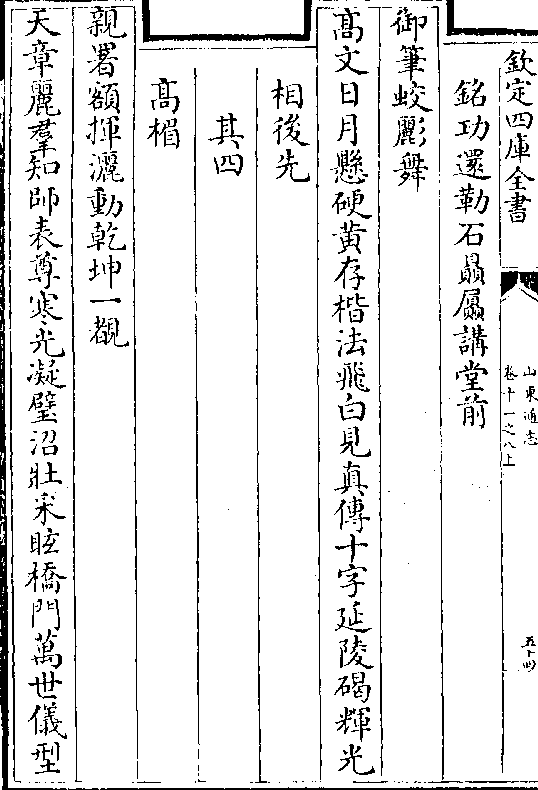 欽定四庫全書
山東通志
卷十一之八上
五十四
銘功還勒石贔屭講堂前
御筆蛟彪舞
髙文日月懸硬黄存楷法飛白見真傳十字延陵碣輝光
相後先
其四
髙楣
親署額揮灑動乾坤一覩
天章麗羣知師表尊寒光凝璧沼壯采眩橋門萬世儀型